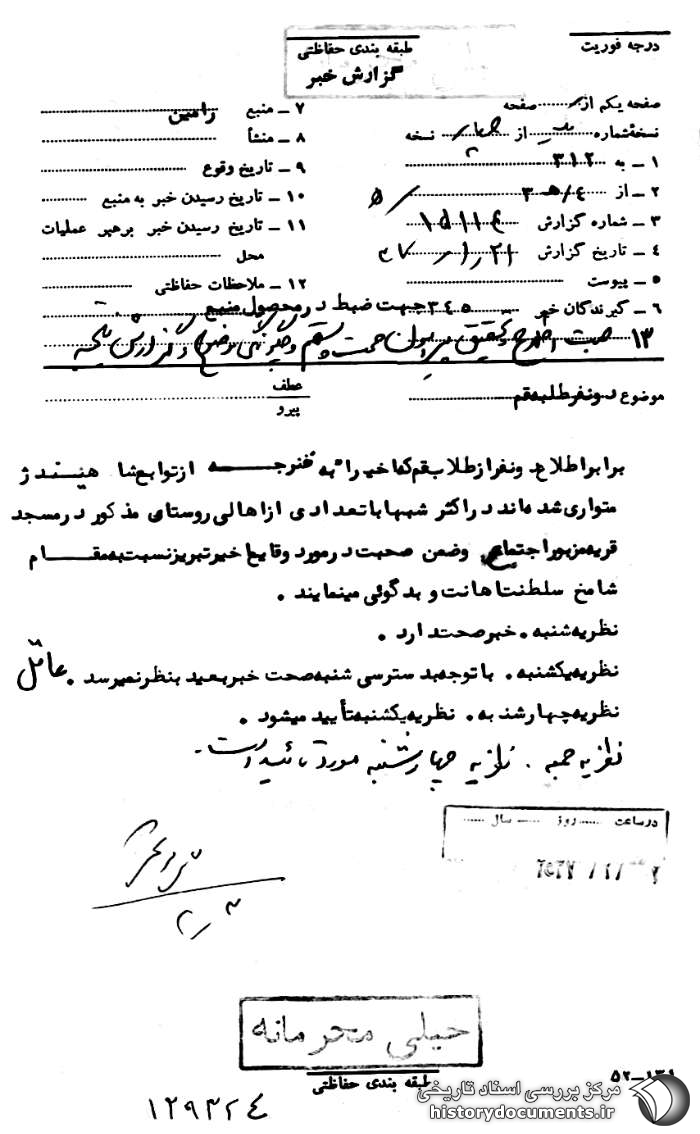 درجه فوریت
طبقه بندی حفاظتی
گزارش خبر
صفحه یکم از ........ صفحه
نسخهٔ شماره ........ از چهار نسخه
۱ ــ به ۳۱۲
۲ ــ از ۳ ه‍ / ٤
۳ ــ شماره گزارش ۱۵۱۱٤
۴ ــ تاریخ گزارش
۵ ــ پیوست
۶ ــ گیرندگان خبر ۳٤۵ جهت ضبط در محصول منبع
۷ ــ منبع رامین
۸ ــ منشأ
۹ ــ تاریخ وقوع
۱۰ ــ تاریخ رسیدن خبر به منبع
۱۱ ــ تاریخ رسیدن خبر برهبر عملیات
محل
۱۲ ــ ملاحظات حفاظتی
۱۳
موضوع دونفر طلبه قم
عطف
پیرو
برابر اطلاع دونفر از طلاب قم که اخیرا" به فنرجه از توابع شا هیندژ
متواری شده اند در اکثر شبها با تعدادی از اهالی روستای مذکور در مسجد
قریه مزبور اجتماع وضمن صحبت در مورد وقایع اخیر تبریز نسبت به مقام
شامخ سلطنت اهانت و بدگوئی مینمایند .
نظریه شنبه . خبر صحت دارد .
نظریه یکشنبه . با توجه بدسترسی شنبه صحت خبر بعید بنظر نمیرسد .
نظریه چهارشنبه . نظریه یکشنبه تأیید میشود .
نظریه جمعه . نظریه چهارشنبه مورد تائید است .
در ساعت ...... روز ...... سال ......
خیلی محرمانه
طبقه بندی حفاظتی
۱۲۹۳۲٤
مرکز بررسی اسناد تاریخی
historydocuments.ir